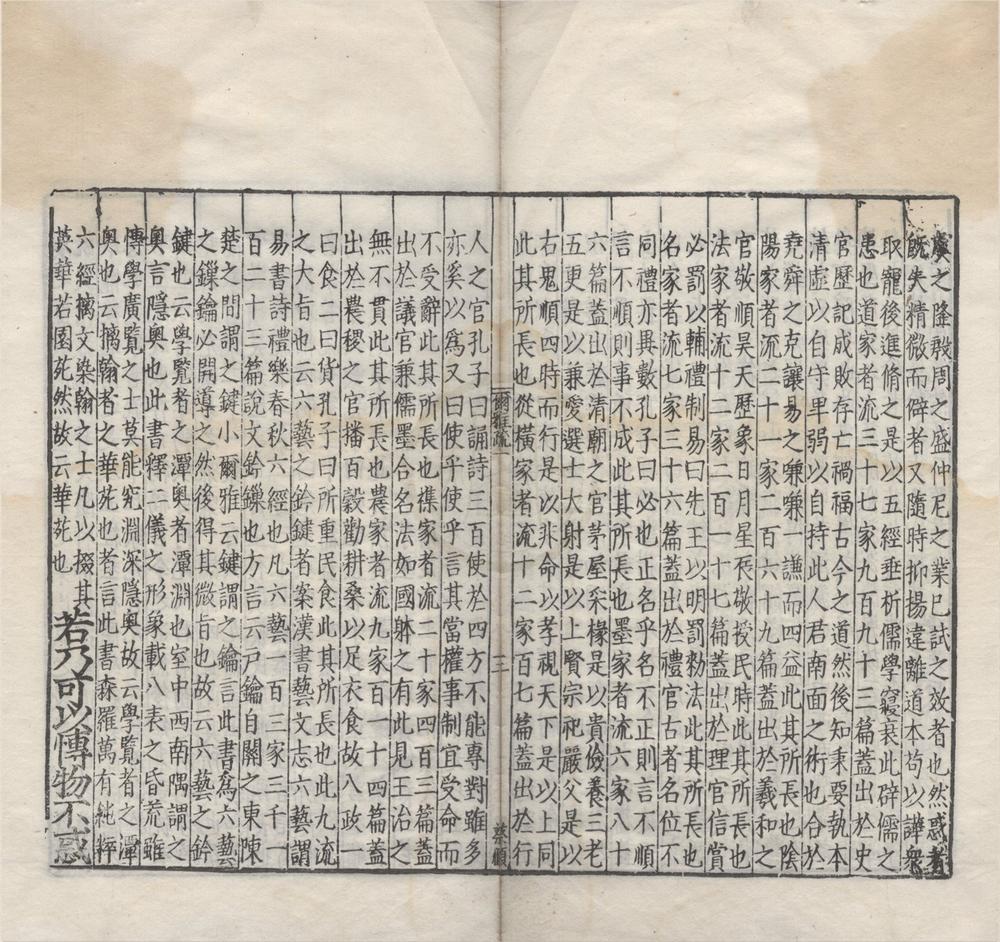 虞之隆殷周之盛仲尼之業已試之效者也然惑者
既失精微而僻者又隨時抑揚違離道本苟以譁衆
取寵後進脩之是以五經乖析儒學寖衰此辟儒之
患也道家者流三十七家九百九十三篇蓋出於史
官歷記成敗存亡禍福古今之道然後知秉要執本
清虛以自守卑弱以自持此人君南面之術也合於
堯舜之克讓易之嗛嗛一謙而四益此其所長也陰
陽家者流二十一家二百六十九篇蓋出於羲和之
官敬順昊天歷象日月星辰敬授民時此其所長也
法家者流十二家二百一十七篇蓋出於理官信賞
必罰以輔禮制易曰先王以明罰勑法此其所長也
名家者流七家三十六篇蓋出於禮官古者名位不
同禮亦異數孔子曰必也正名乎名不正則言不順
言不順則事不成此其所長也墨家者流六家八十
六篇蓋出於清廟之官茅屋采椽是以貴儉養三老
五更是以兼愛選士大射是以上賢宗祀嚴父是以
右鬼順四時而行是以非命以孝視天下是以上同
此其所長也從橫家者流十二家百七篇蓋出於行
爾雅疏一
三
蔡順
人之官孔子曰誦詩三百使於四方不能專對雖多
亦奚以爲又曰使乎使乎言其當權事制宜受命而
不受辭此其所長也雜家者流二十家四百三篇蓋
出於議官兼儒墨合名法如國躰之有此見王治之
無不貫此其所長也農家者流九家百一十四篇蓋
出於農稷之官播百穀勸耕桑以足衣食故八政一
曰食二曰貨孔子曰所重民食此其所長也此九流
之大旨也云六藝之鈐鍵者案漢書藝文志六藝謂
易書詩禮樂春秋六經也凡六藝一百三家三千一
百二十三篇說文鈐鏁也方言云戶鑰自關之東陳
楚之間謂之鍵小爾雅云鍵謂之鑰言此書爲六藝
之鏁鑰必開導之然後得其微旨也故云六藝之鈐
鍵也云學覽者之潭奧者潭淵也室中西南隅謂之
奧言隱奧也此書釋二儀之形象載八表之昏荒雖
博學廣覽之士莫能究淵深隱奧故云學覽者之潭
奧也云摛翰者之華苑也者言此書森羅萬有純粹
六經摛文染翰之士凡以掇其
英華若園苑然故云華苑也
若乃可以博物不惑